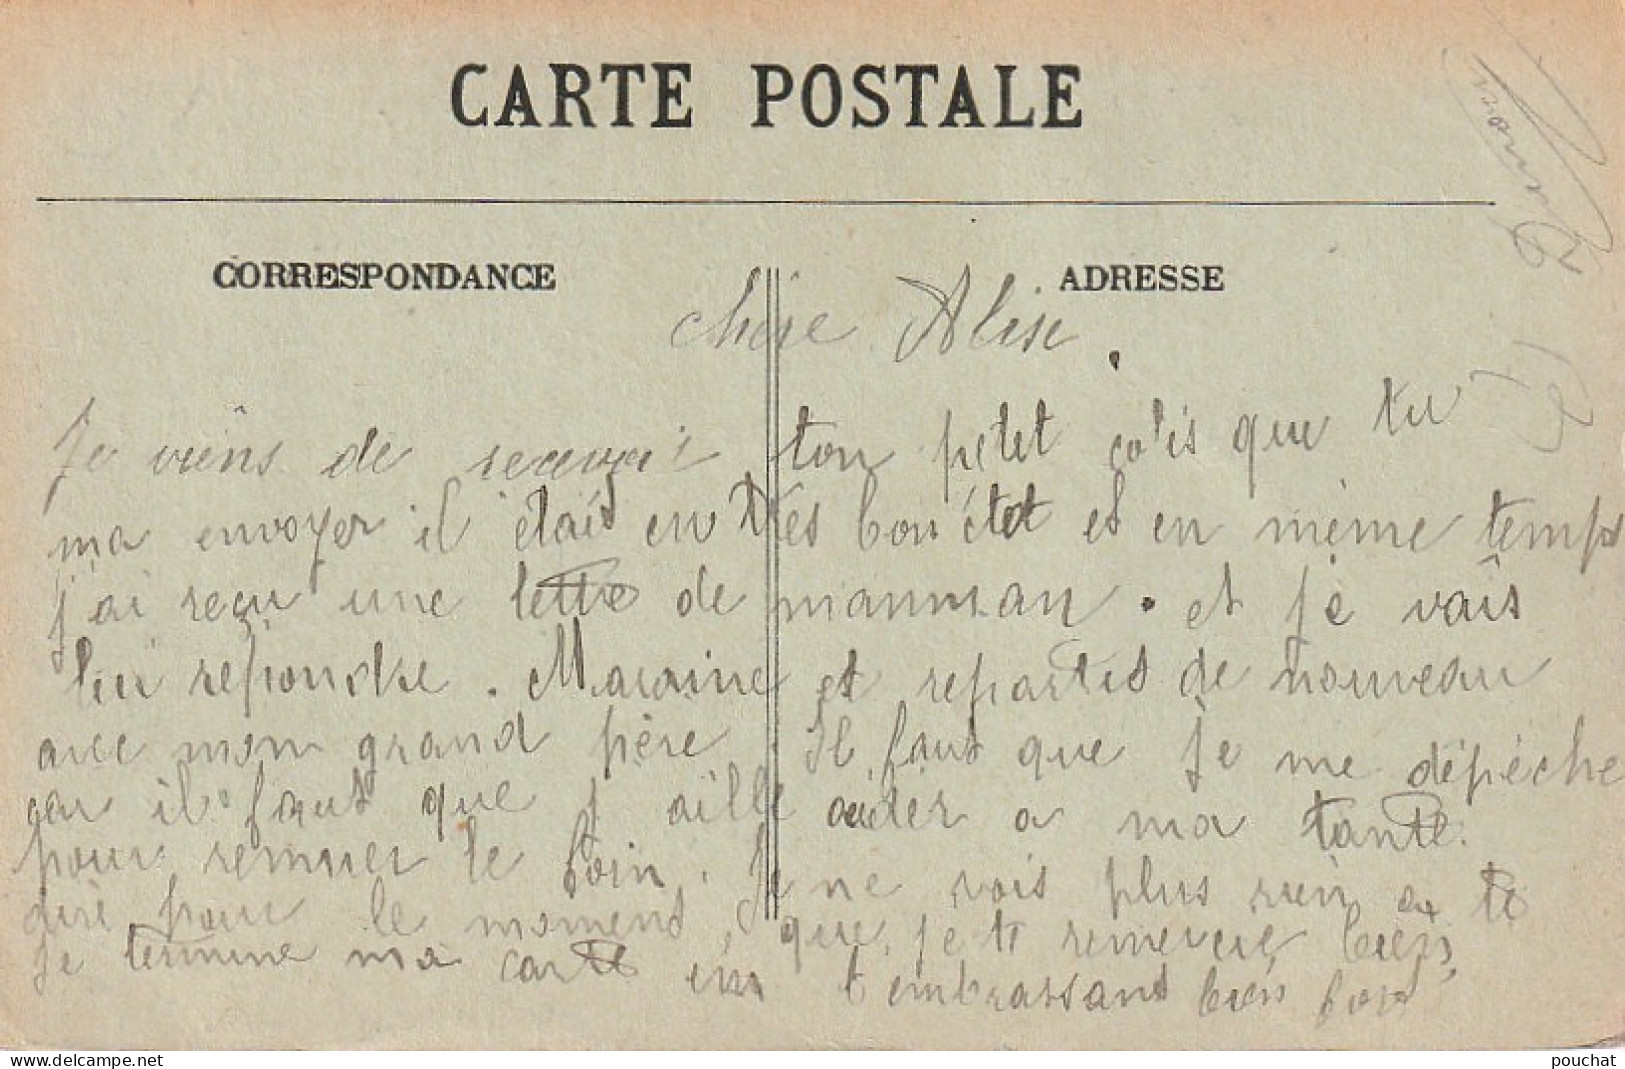 CARTE POSTALE
CORRESPONDANCE
ADRESSE
chère Alise.
Je viens de recevoir ton petit colis que tu
ma envoyer il était en très bon état et en même temps
j'ai reçu une lettre de manman. et je vais
lui repondre. Maraine et repartis de nouveau
avec mon grand père. Il faut que je me dépèche
car il faut que j aille aider a ma tante
pour remuer le foin. Je ne vois plus rien a te
dire pour le moment, que je te remercie bien,
Je termine ma carte en t embrassant bien fort
pouchat
www.delcampe.net